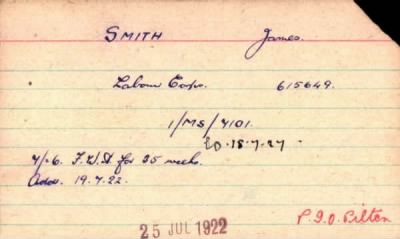 SMITH James.
Labour Corps. 615649.
1/MS/4101.
18.7.27
7/6. F.W.A for 35 weeks.
Addr. 19.7.22.
25 JUL 1922
P.I.O. Pilton